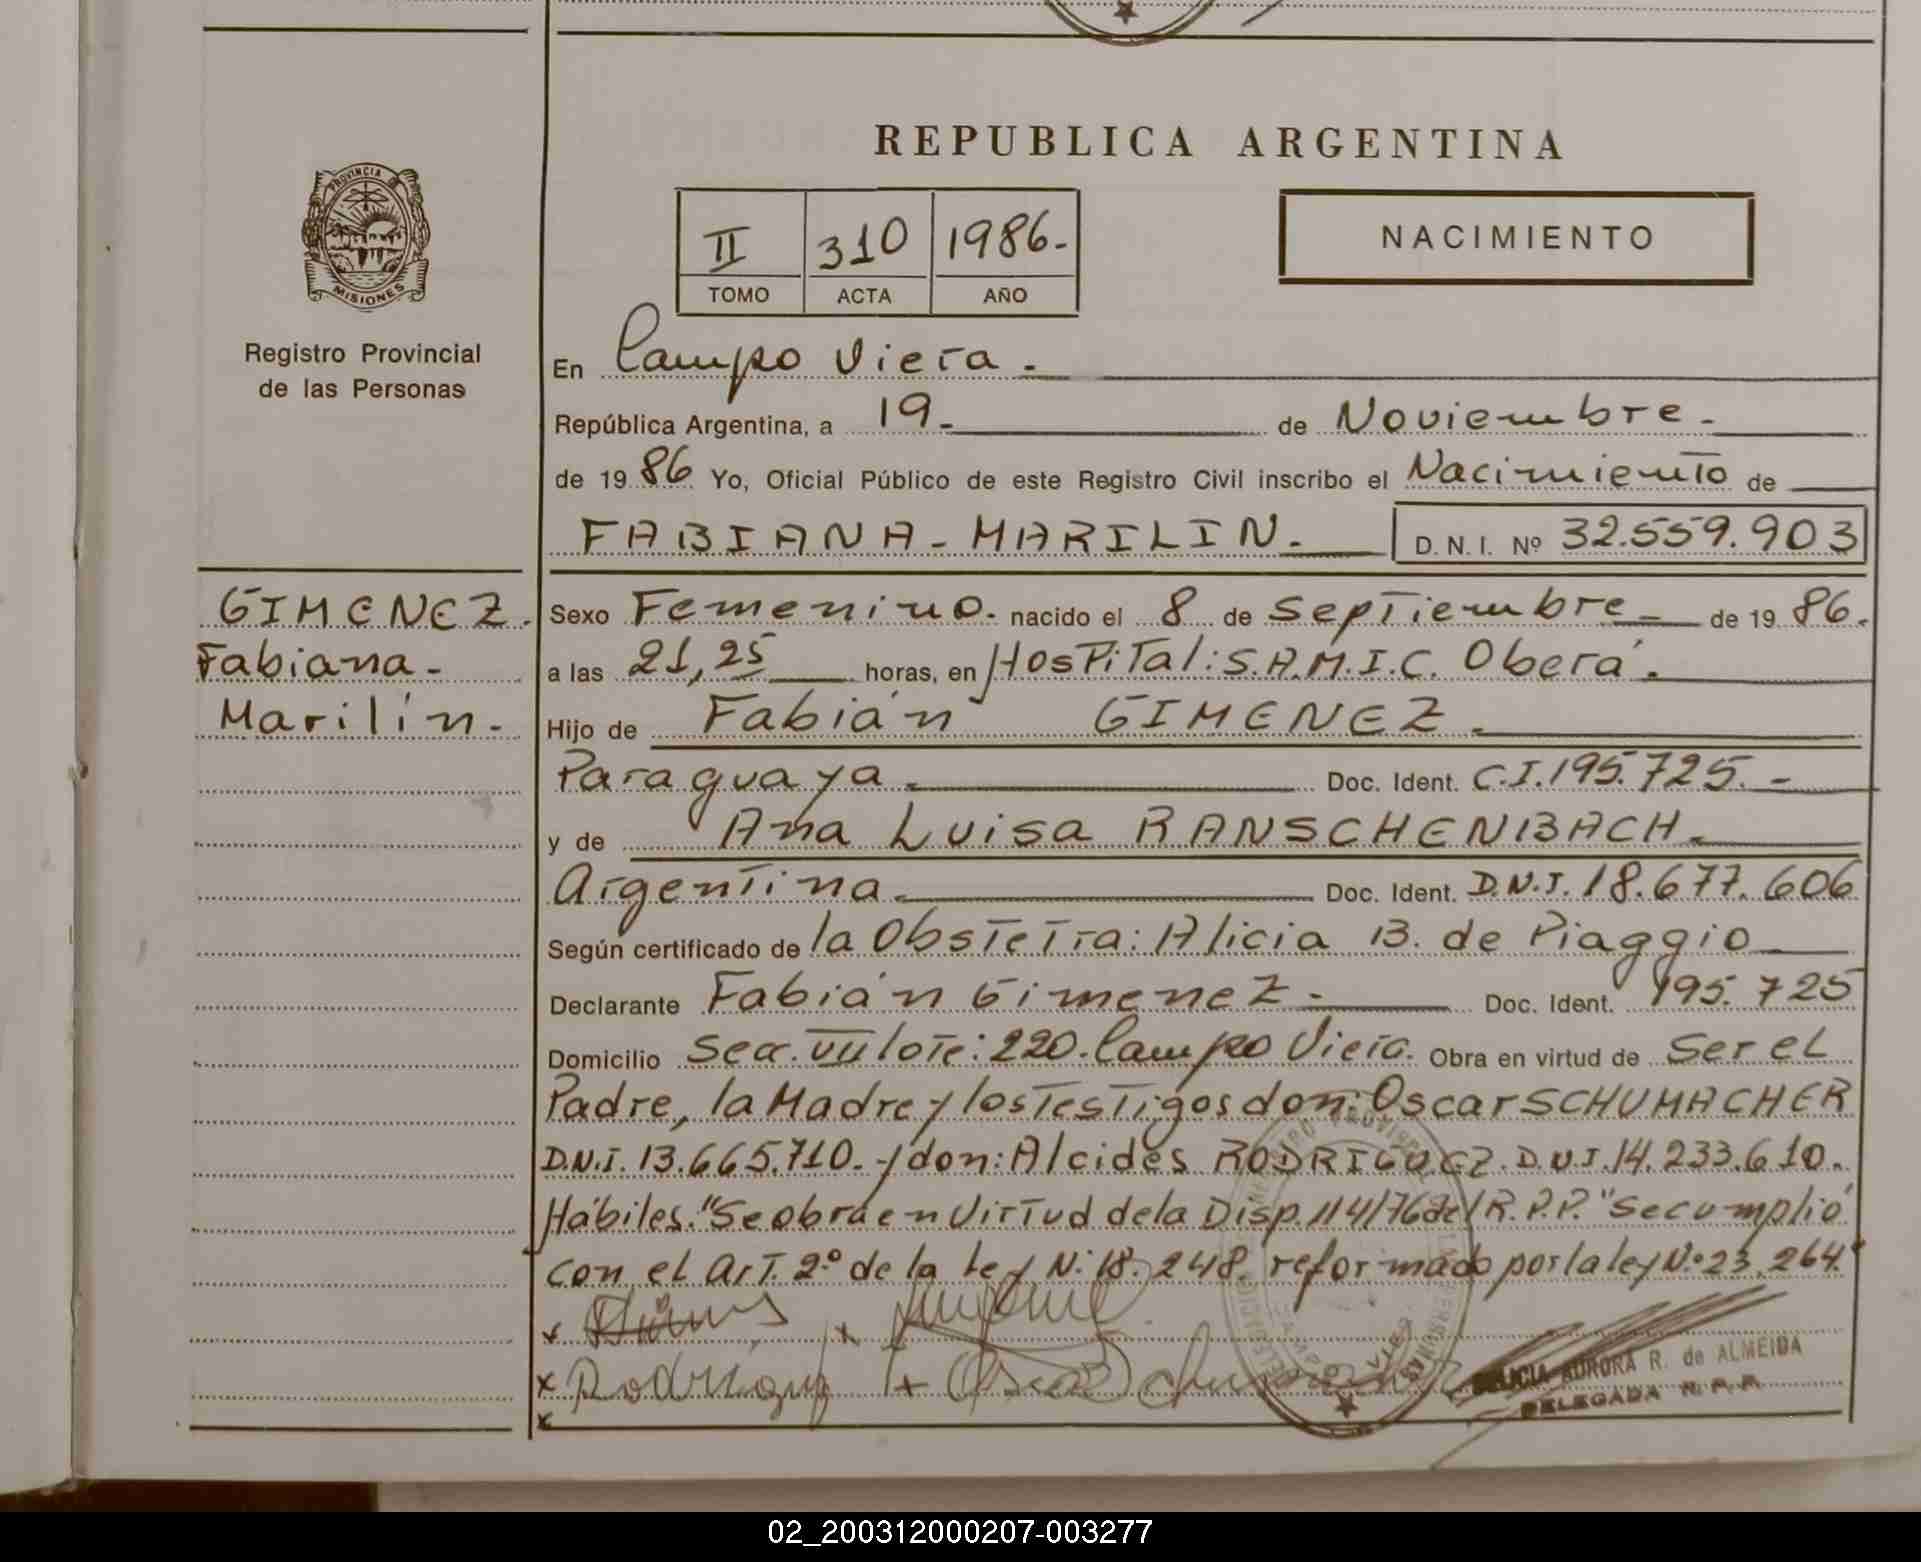 REPUBLICA ARGENTINA
PROVINCIA DE
MISIONES
Registro Provincial
de las Personas
II 310 1986.-
TOMO ACTA AÑO
NACIMIENTO
En Campo Viera.-
República Argentina, a 19.- de Noviembre.-
de 1986 Yo, Oficial Público de este Registro Civil inscribo el Nacimiento de
FABIANA-MARILIN.- D.N.I. Nº 32.559.903
GIMENEZ.
Fabiana-
Marilín.-
Sexo Femenino.- nacido el 8 de Septiembre de 1986.
a las 21,25 horas, en Hospital: S.A.M.I.C. Oberá.-
Hijo de Fabián GIMENEZ.-
Paraguaya.- Doc. Ident. C.I.195.725.-
y de Ana Luisa RANSCHENBACH.-
Argentina.- Doc. Ident. D.N.I. 18.677.606
Según certificado de la Obstetra: Alicia B. de Piaggio
Declarante Fabián Gimenez.- Doc. Ident. 195.725
Domicilio Secc. VII lote: 220. Campo Viera. Obra en virtud de Ser el
Padre, la Madre y los Testigos don: Oscar SCHUMACHER
D.N.I. 13.665.710.- y don: Alcides RODRIGUEZ. D.N.I. 14.233.610.
Hábiles. "Se obra en Virtud de la Disp. 114/76 del R.P.P." Se cumplió
con el Art. 2º de la Ley N: 18.248. reformado por la ley Nº 23.264.
x x
x Rodríguez x Oscar Schumacher
x
ALICIA AURORA R. de ALMEIDA
DELEGADA R.P.P.
02_200312000207-003277